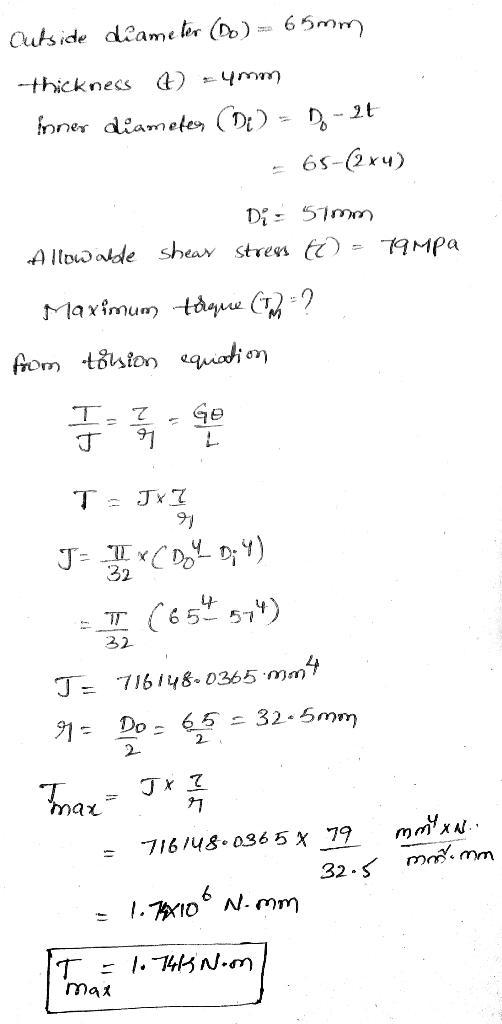 Outside diameter (Do) = 65mm
thickness (t) = 4mm
inner diameter (Di) = Do - 2t
= 65-(2x4)
Di = 57mm
Allowable shear stress (τ) = 79MPa
Maximum torque (T_M) = ?
from torsion equation
T/J = τ/r = Gθ/L
T = J x τ/r
J = π/32 x (Do⁴ - Di⁴)
= π/32 (65⁴ - 57⁴)
J = 716148.0365 mm⁴
r = Do/2 = 65/2 = 32.5mm
Tmax = J x τ/r
= 716148.0365 x 79/32.5 mm⁴ x N / mm².mm
= 1.74x10⁶ N-mm
Tmax = 1.74 KN.m